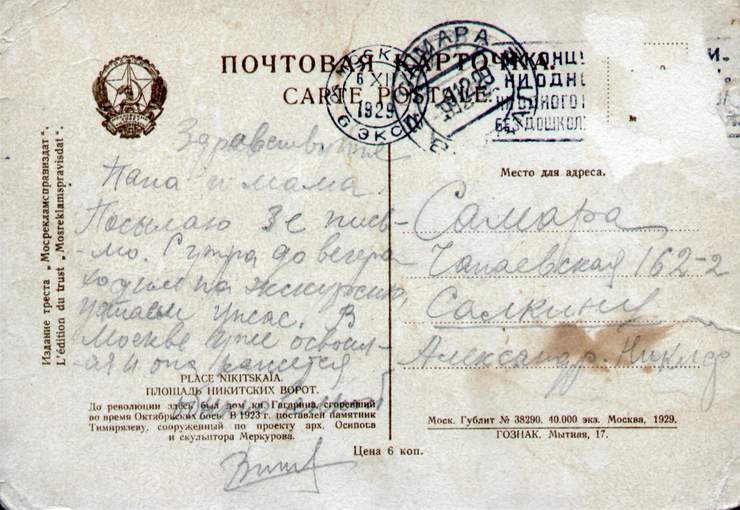 ПОЧТОВАЯ КАРТОЧКА.
CARTE POSTALE.
МОСКВА
6 XII
1929
6 ЭКСП
САМАРА
Издание треста „Мосрекламсправиздат".
L'édition du trust „Mosreklamspravisdat".
Здравствуйте
Папа и мама.
Посылаю 3е пись-
мо. С утра до вечера
ходим на экскурсию,
устаем ужас. В
Москве уже освоил-
ся и она кажется
PLACE NIKITSKAÏA.
ПЛОЩАДЬ НИКИТСКИХ ВОРОТ.
До революции здесь был дом кн. Гагарина, сгоревший
во время Октябрьских боев. В 1923 г. поставлен памятник
Тимирязеву, сооруженный по проекту арх. Осипова
и скульптора Меркурова.
Место для адреса.
Самара
Чапаевская 162-2
Салкину
Александр. Никиф
Моск. Гублит № 38290. 40.000 экз. Москва, 1929.
ГОЗНАК. Мытная, 17.
Цена 6 коп.